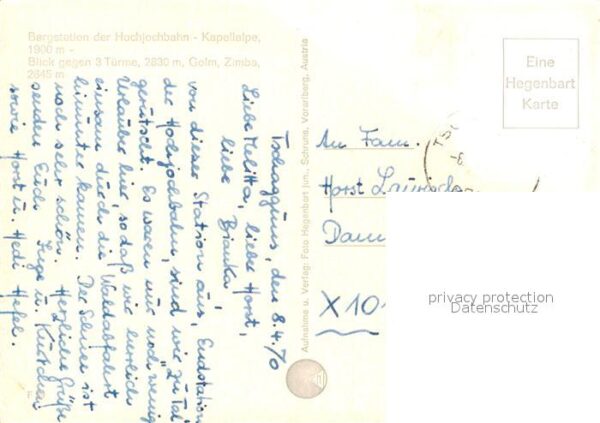 Bergstation der Hochjochbahn - Kapellalpe,
1900 m -
Blick gegen 3 Türme, 2830 m, Golm, Zimba,
2645 m
Tschagguns, den 8.4.70
Liebe Melitta, lieber Horst,
liebe Bianka!
von dieser Station aus, Endstation
der Hochjochbahn, sind wir zu Tal
gerutscht. Es waren nur noch wenig
Urlauber hier, so daß wir herrlich
einsam durch die Waldabfahrt
hinunter kamen. Der Schnee ist
noch sehr schön. Herzliche Grüße
senden Euch Inge u.
sowie Horst u. Hedi
Aufnahme u. Verlag: Foto Hegenbart jun., Schruns, Vorarlberg, Austria
Eine
Hegenbart
Karte
An Fam.
Horst
Dam
X 101
privacy protection
Datenschutz